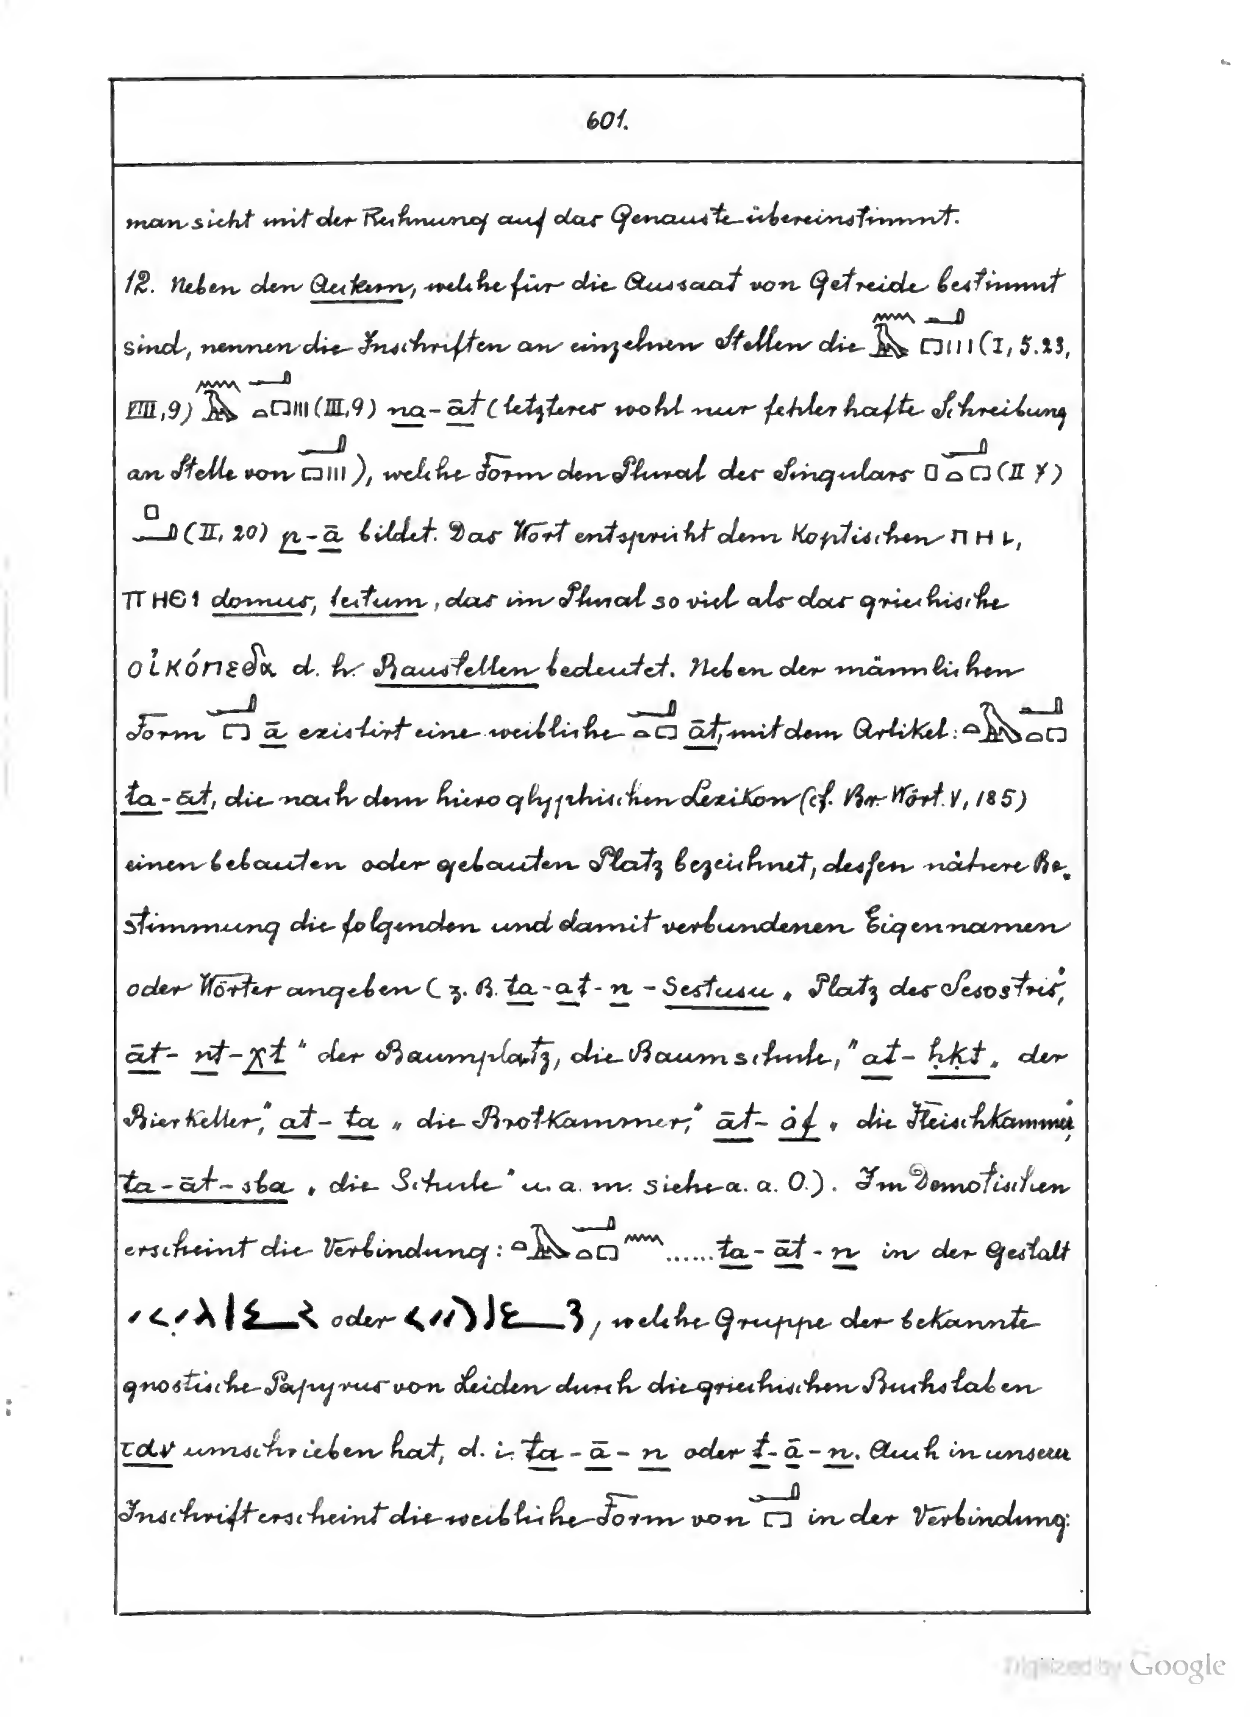 601.
man sieht mit der Rechnung auf das Genauste übereinstimmt.
12. Neben den Aeckern, welche für die Aussaat von Getreide bestimmt
sind, nennen die Inschriften an einzelnen Stellen die (I, 5.23,
VIII,9) (III,9) na-āt (letzteres wohl nur fehlerhafte Schreibung
an Stelle von ), welche Form den Plural des Singulars (II 7)
(II, 20) p-ā bildet. Das Wort entspricht dem Koptischen ΠΗΙ,
ΠΗЄΙ domus, tectum, das im Plural so viel als das griechische
οἰκόπεδα d. h. Baustellen bedeutet. Neben der männlichen
Form ā existirt eine weibliche āt, mit dem Artikel:
ta-āt, die nach dem hieroglyphischen Lexikon (cf. Br. Wört. V, 185)
einen bebauten oder gebauten Platz bezeichnet, dessen nähere Be-
stimmung die folgenden und damit verbundenen Eigennamen
oder Wörter angeben (z. B. ta-at-n-Sestusu „Platz des Sesostris“,
āt-nt-χt “der Baumplatz, die Baumschule,” at-ḥḳt „der
Bierkeller,“ at-ta „die Brotkammer,“ āt-ȧf „die Fleischkammer,
ta-āt-sba „die Schule“ u. a. m. siehe a. a. O.). Im Demotischen
erscheint die Verbindung: ...... ta-āt-n in der Gestalt
oder , welche Gruppe der bekannte
gnostische Papyrus von Leiden durch die griechischen Buchstaben
ταν umschrieben hat, d. i. ta-ā-n oder t-ā-n. Auch in unserer
Inschrift erscheint die weibliche Form von in der Verbindung:
Digitized by Google